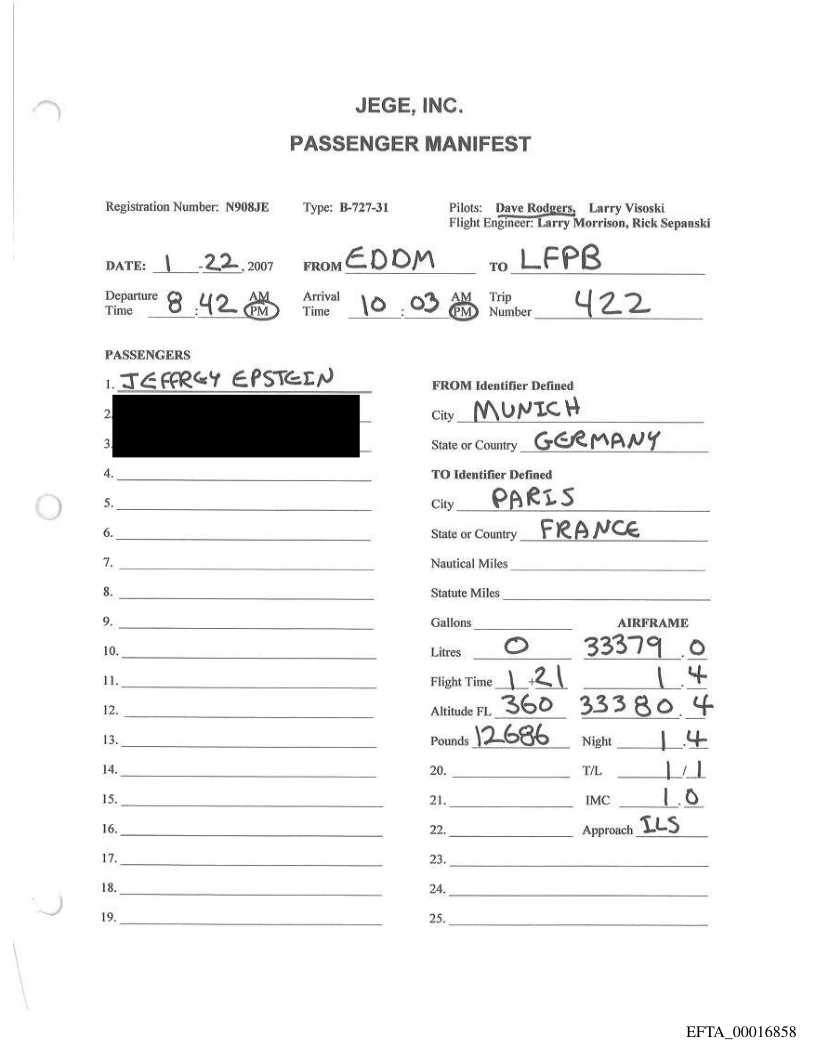 JEGE, INC.
PASSENGER MANIFEST
Registration Number: N908JE Type: B-727-31 Pilots: Dave Rodgers, Larry Visoski
Flight Engineer: Larry Morrison, Rick Sepanski
DATE: 1 - 22, 2007 FROM EDDM TO LFPB
Departure Time 8 : 42 AM PM Arrival Time 10 : 03 AM PM Trip Number 422
PASSENGERS
1. JEFFREY EPSTEIN
2.
3.
4.
5.
6.
7.
8.
9.
10.
11.
12.
13.
14.
15.
16.
17.
18.
19.
FROM Identifier Defined
City MUNICH
State or Country GERMANY
TO Identifier Defined
City PARIS
State or Country FRANCE
Nautical Miles
Statute Miles
Gallons AIRFRAME
Litres 0 33379.0
Flight Time 1+21 1.4
Altitude FL 360 33380.4
Pounds 12686 Night 1.4
20. T/L 1/1
21. IMC 1.0
22. Approach ILS
23.
24.
25.
EFTA_00016858